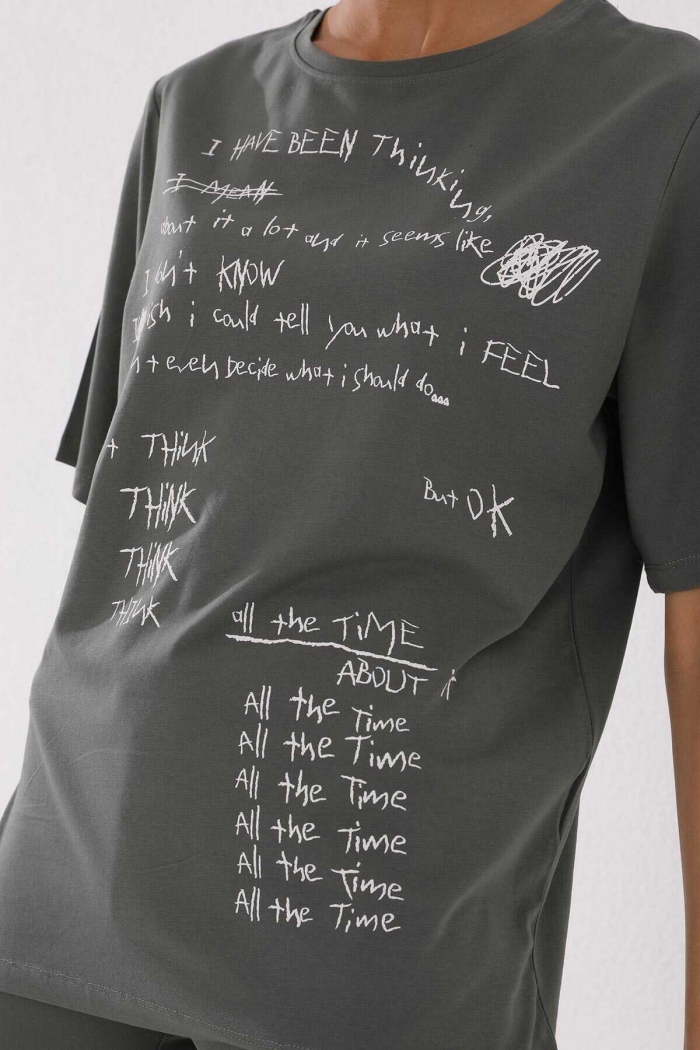 I HAVE BEEN Thinking,
I MEAN
about it a lot and it seems like
I don't KNOW
I wish i could tell you what i FEEL
even decide what i should do...
THiNK
THiNK
But OK
THiNK
THINK
all the TiME
ABOUT it
All the Time
All the Time
All the Time
All the Time
All the Time
All the Time